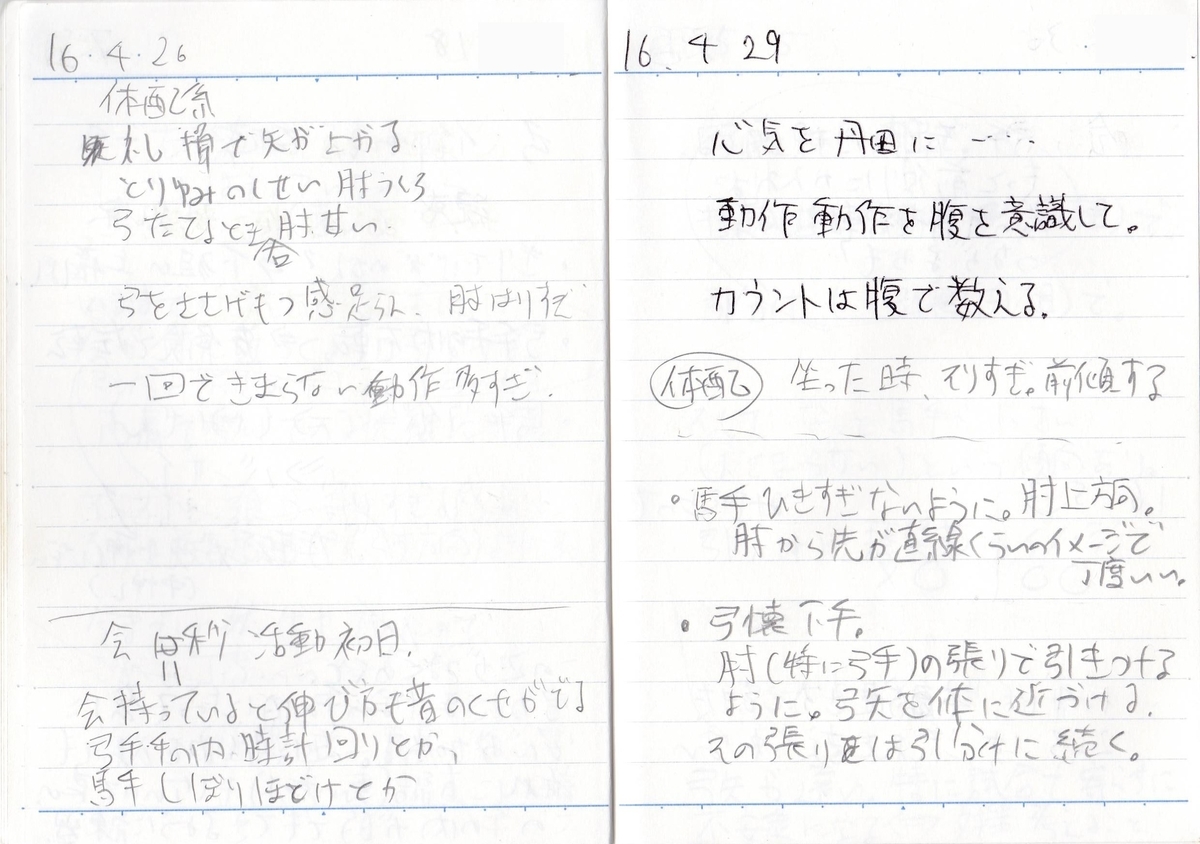 16.4.26
体配系
礼 揖で矢が上がる
とり弓みのくせい 肘うくろ
弓たてるとき 肘甘い.
呑
弓をささげもつ感足らん、肘はりすぎ
一回できまらない動作多すぎ.
会 秒 活動初日.
会持っていると伸び方も昔のくせがでる
弓手手の内時計回りとか、
馬手しぼりほどけとか
16.4 29
心気を丹田に……
動作動作を腹を意識して。
カウントは腹で数える.
体配 坐った時、そりすぎ。前傾する
・馬手ひきすぎないように。肘上方向。
肘から先が直線くらいのイメージで
丁度いい。
・弓懐下手。
肘(特に弓手)の張りで引きつける
ように。弓矢を体に近づける.
その張りは引分けに続く。